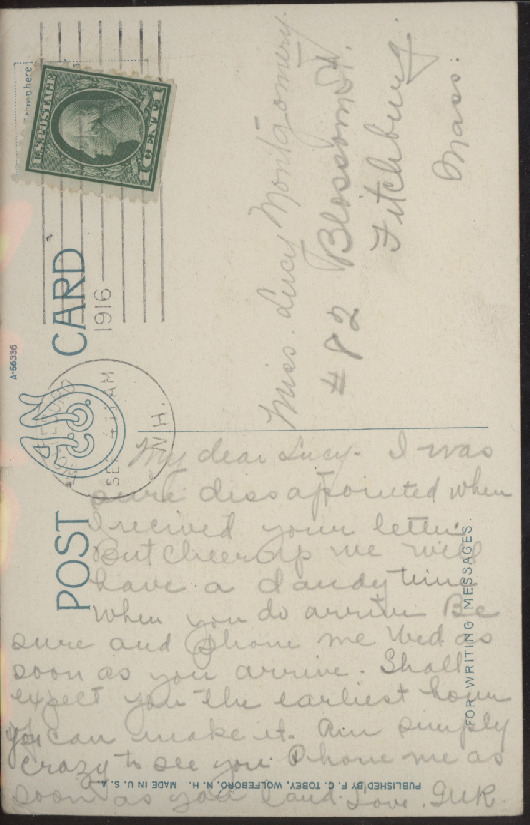 POST CARD
Place here
U.S. POSTAGE
1 CENT 1
1916
SEP 4
AM
N.H.
A-66336
Miss. Lucy Montgomery.
#82 Blossom St.
Fitchburg.
Mass.
My dear Lucy. I was
sure dissapointed when
I recived your letter.
But cheer up we will
have a dandy time
when you do arrive Be
sure and phone me Wed as
soon as you arrive. Shall
expect you the earliest hour
you can make it. Am simply
crazy to see you. Phone me as
soon as you land. Love.
FOR WRITING MESSAGES.
PUBLISHED BY F. C. TOBEY, WOLFEBORO, N. H. MADE IN U. S. A.